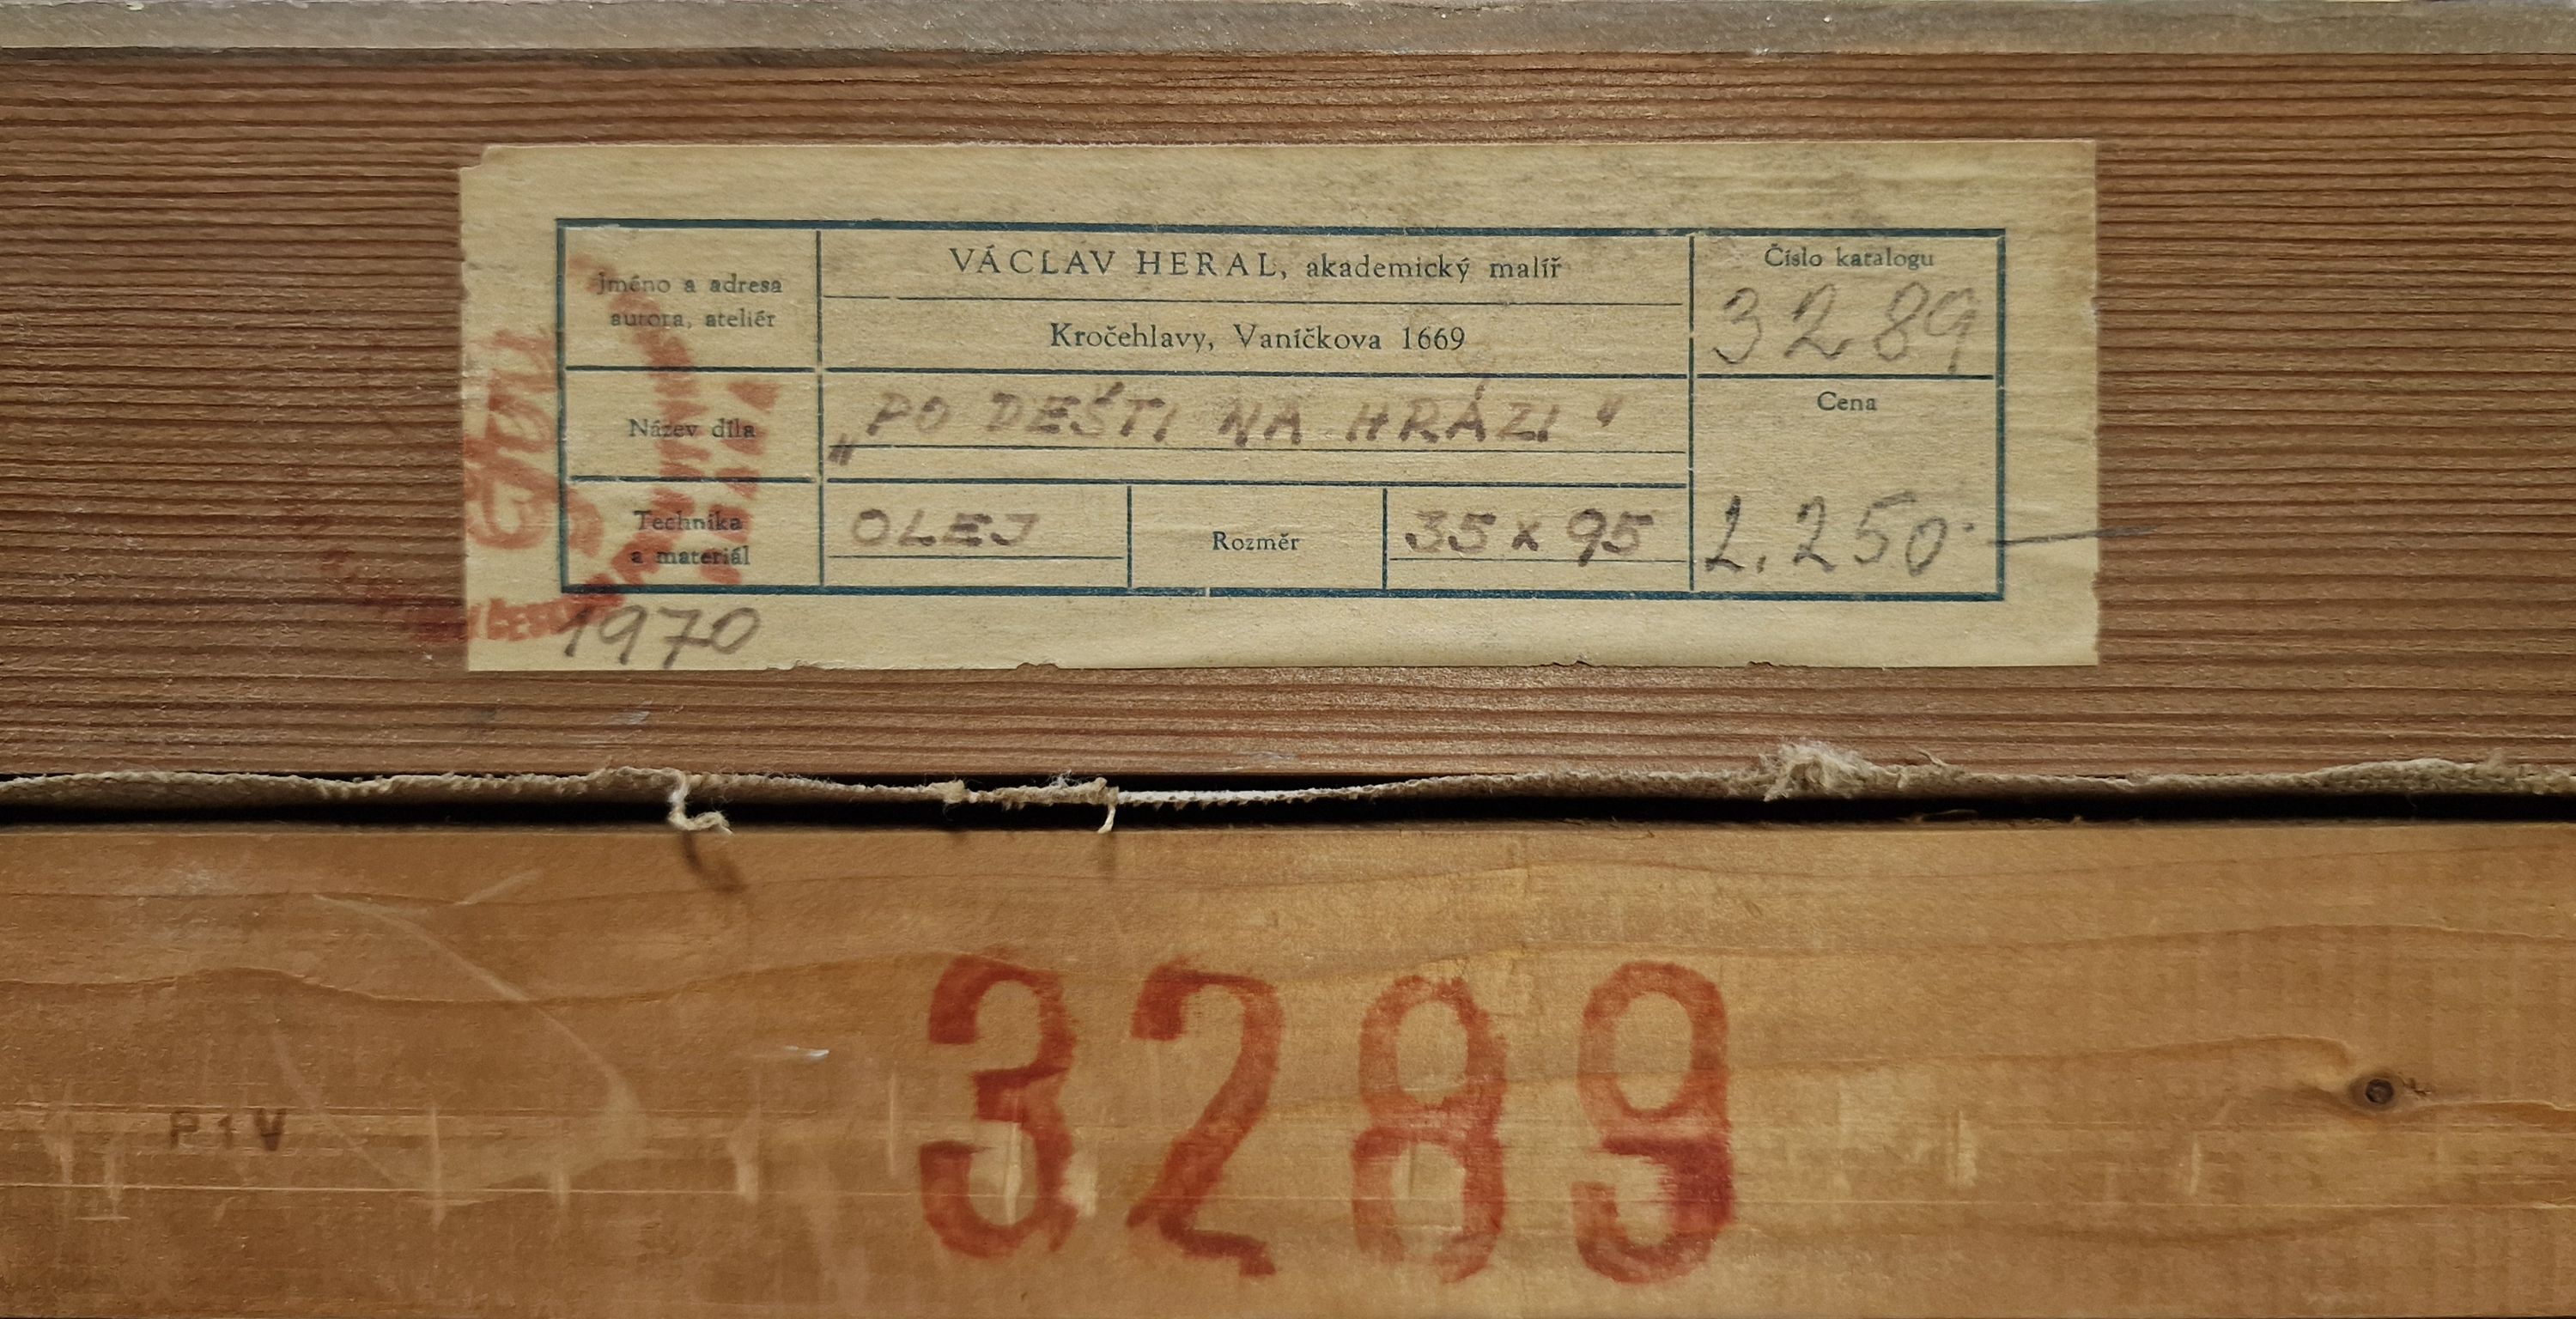 VÁCLAV HERAL, akademický malíř
Jméno a adresa
autora, ateliér
Kročehlavy, Vaníčkova 1669
Číslo katalogu
3289
Název díla
„PO DEŠTI NA HRÁZI“
Cena
2.250.—
Technika
a materiál
OLEJ
Rozměr
35 x 95
1970
3289
P 1 V